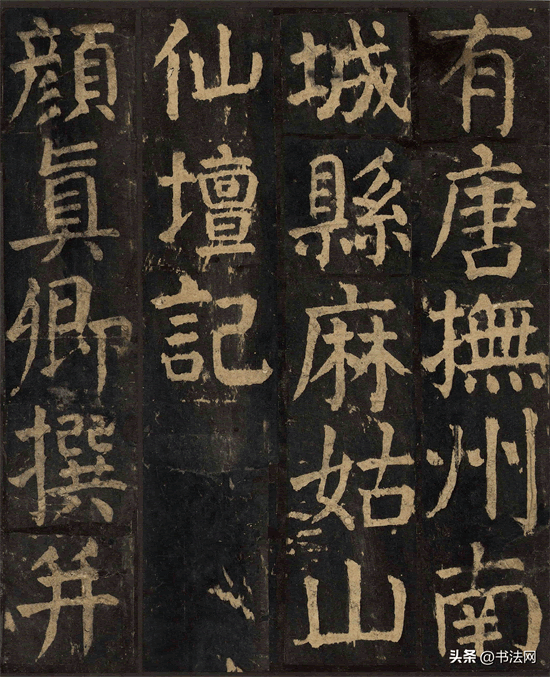 有唐撫州南
城縣麻姑山
仙壇記
顏真卿撰并
头条 @书法网